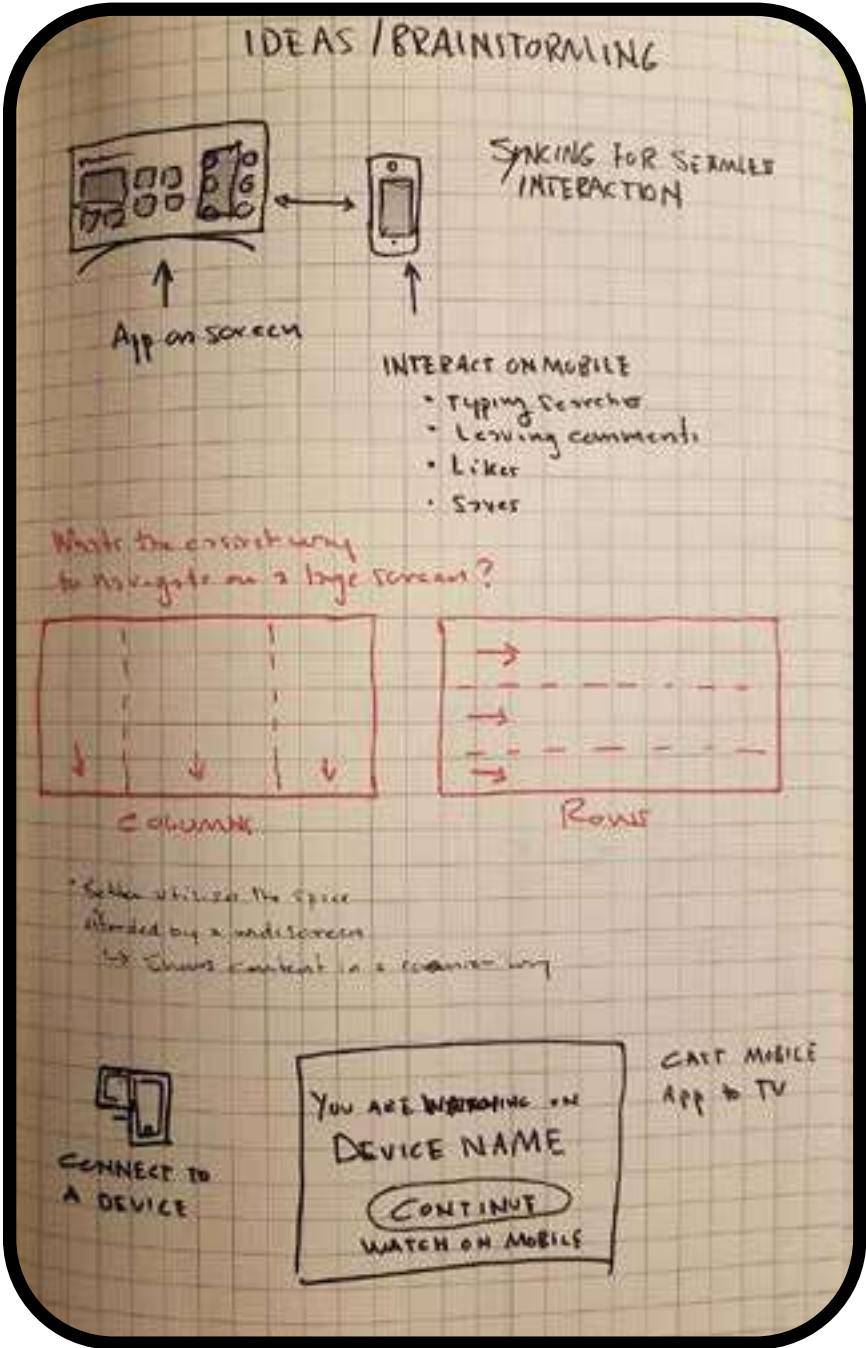 IDEAS / BRAINSTORMING
SYNCING FOR SEAMLES
INTERACTION
App on screen
INTERACT ON MOBILE
• Typing Searches
• Leaving comments
• Likes
• Saves
the easiest way
to navigate on a large screen?
COLUMNS
ROWS
• Better utilizes the space
afforded by a
↳ Shows content in a way
CAST MOBILE
App to TV
YOU ARE ON
DEVICE NAME
CONTINUE
WATCH ON MOBILE
CONNECT TO
A DEVICE